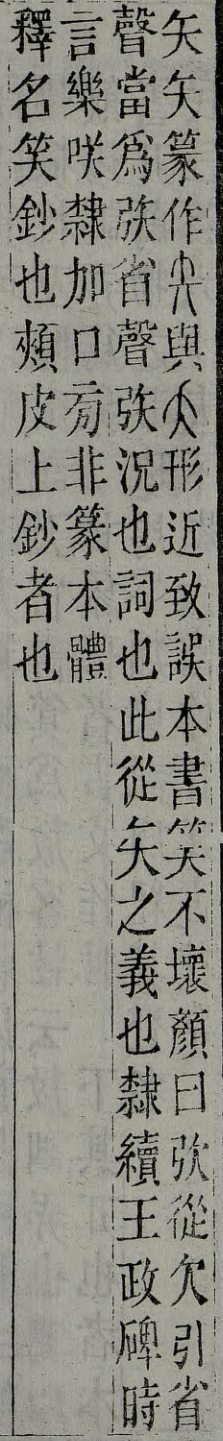 矢矢篆作𠂕與大形近致誤本書笑不壞顏曰弞從欠引省
聲當爲弞省聲弞況也詞也此從矢之義也隸續王政碑時
言樂咲隸加口旁非篆本體
釋名笑鈔也頰皮上鈔者也